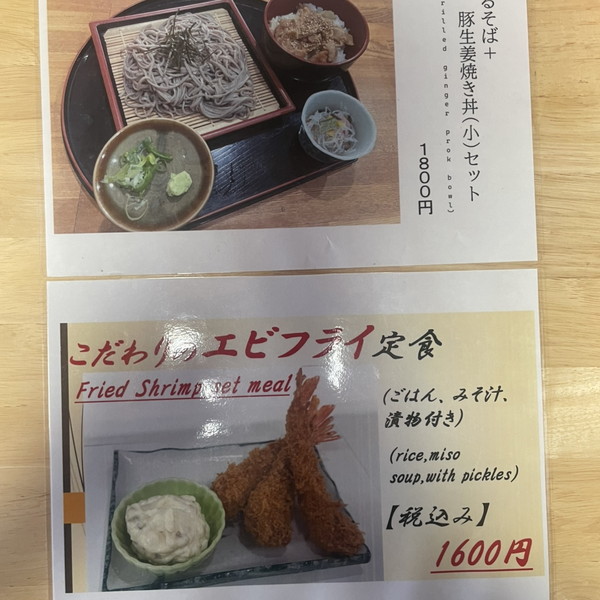 るそば＋
豚生姜焼き丼(小)セット
ginger prok bowl)
1800円
こだわりのエビフライ定食
Fried Shrimp set meal
(ごはん、みそ汁、
漬物付き)
(rice,miso
soup,with pickles)
【税込み】
1600円